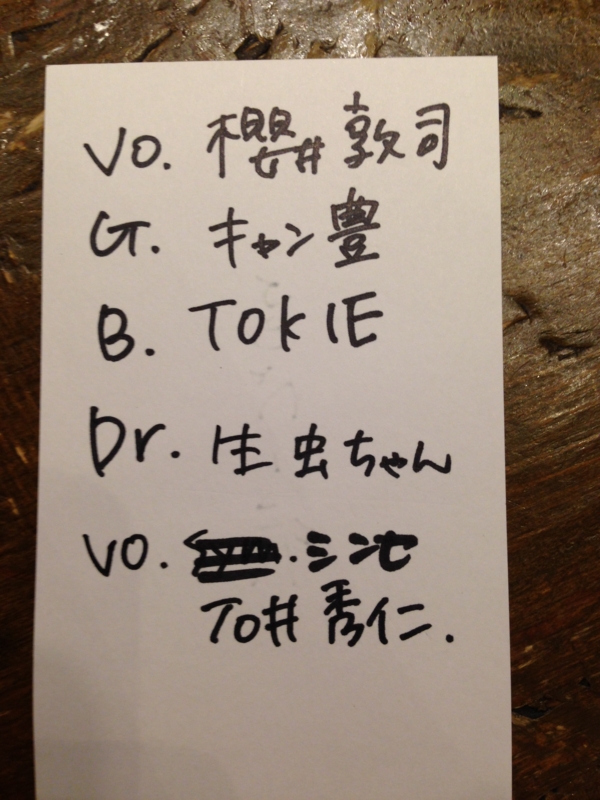 Vo. 櫻井敦司
G. キャン豊
B. TOKIE
Dr. 生虫ちゃん
VO. シンセ
TO井秀仁.